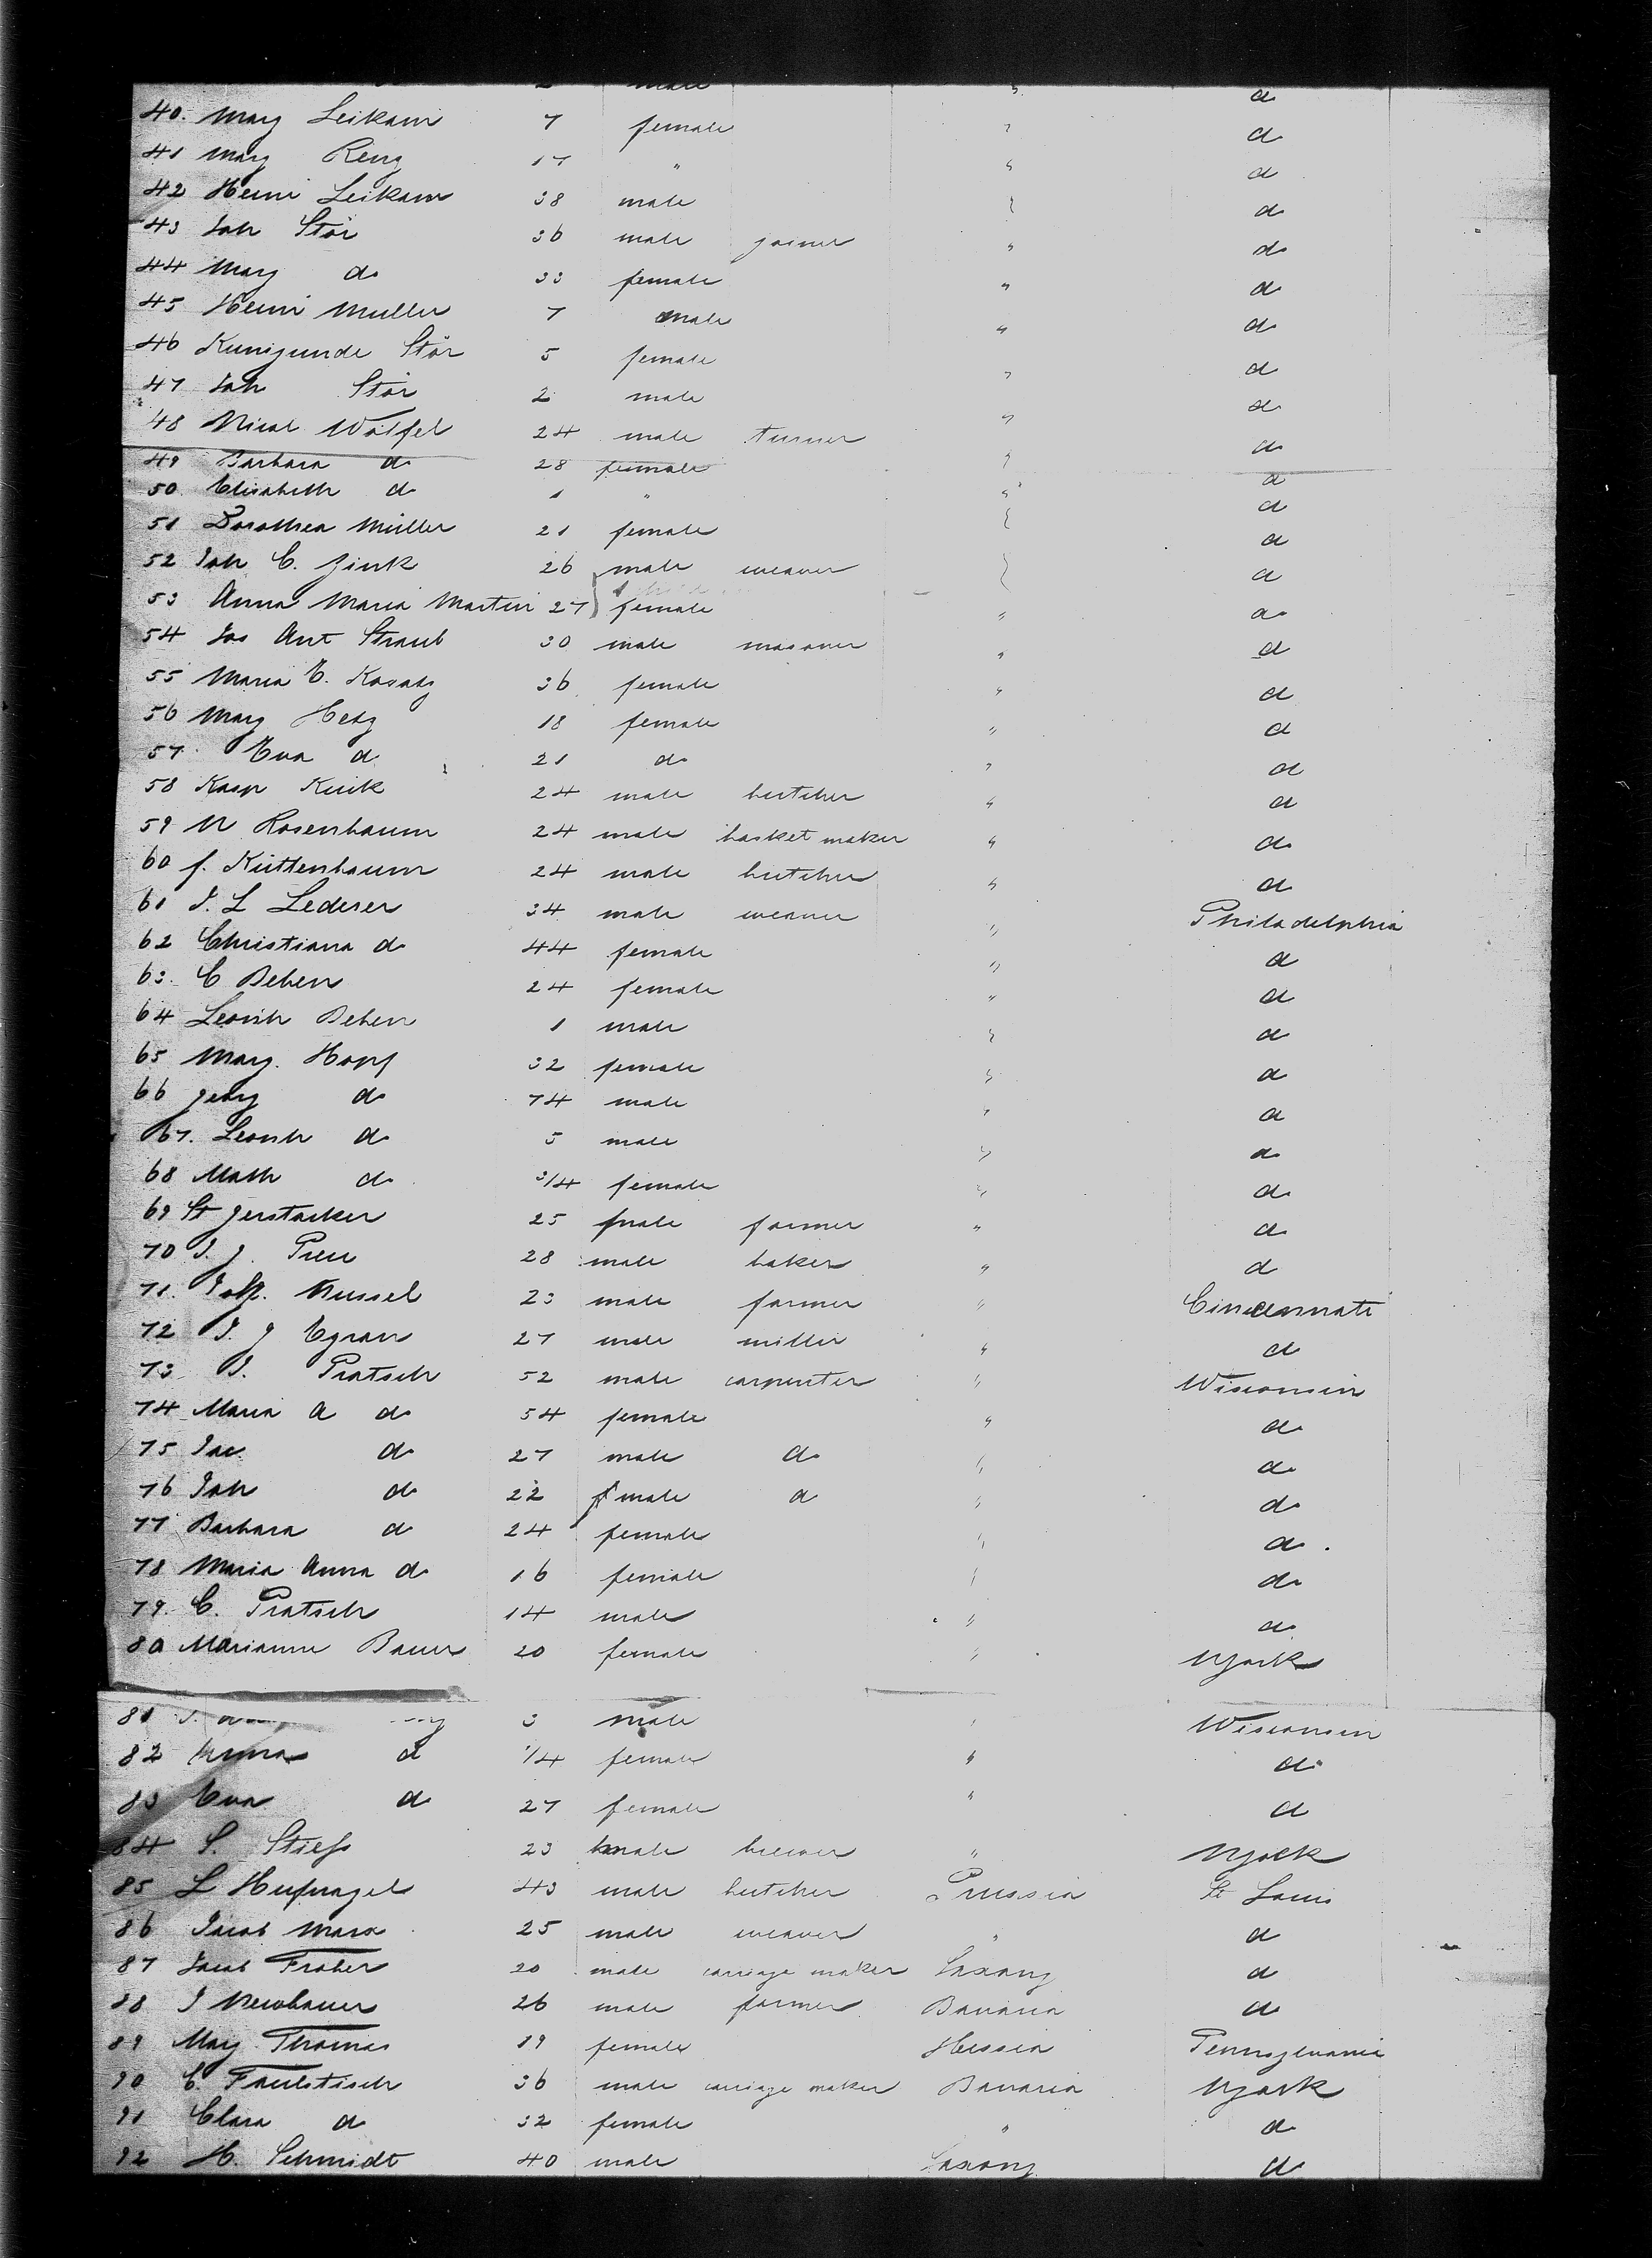 male " d
40. Marg Leikam 7 female " d
41 Marg Reng 17 " " d
42 Heinr Leikam 38 male " d
43 Joh Stör 36 male joiner " do
44 Marg do 33 female " d
45 Heinr Muller 7 male " d
46 Kunigunde Stör 5 female " d
47 Joh Stör 2 male " d
48 Nicol Wölfel 24 male turner " d
49 Barbara do 28 female " d
50. Elisabeth do 1 " " d
51 Dorothea Müller 21 female " d
52 Joh C. Zink 26 male weaver " d
53 Anna Maria Martin 27 female " do
54 Jos Ant Straub 30 male masoner " d
55 Maria E. 36 female " d
56 Marg Hetz 18 female " d
57 Eva d 21 do " d
58 Kasp 24 male butcher " d
59 N Rosenbaum 24 male basket maker " do
60 f. Küttenbaum 24 male butcher " d
61 J. L Lederer 34 male weaver " Philadelphia
62 Christiana do 44 female " d
63. C Beben 24 female " d
64 Leonh Beben 1 male " d
65 Marg. Hopf 32 female " d
66 georg do 74 male " d
67. Leonh do 5 male " do
68 Math do 3/4 female " do
69 St gerstacker 25 male farmer " do
70 J. J. 28 male baker " d
71. Joh. Mussel 23 male farmer " Cincennate
72 J. J Egran 27 male miller " d
73 J. Pratsch 52 male carpenter " Wisconsin
74 Maria A do 54 female " do
75 Jac do 27 male do " do
76 Joh do 22 male d " do
77 Barbara do 24 female " do.
78 Maria Anna do 16 female " do
79. C. Pratsch 14 male " do
80 Marianne Bauer 20 female " NYork
81 J. 3 male " Wisconsin
82 Anna d 1/4 female " do
83 Eva do 27 female " d
84 S. Stiefs 23 male brewer " NYork
85 L Hufnagel 43 male butcher Prussia St Louis
86 Jacob Marx 25 male weaver " d
87 Jacob Frober 20 male carriage maker Saxony d
88 J Neubauer 26 male farmer Bavaria do
89 Marg Thomas 19 female Hessia Pennsylvania
90 C. Faulstisch 36 male carriage maker Bavaria NYork
91 Clara do 32 female " do
92 H. Schmidt 40 male Saxony do